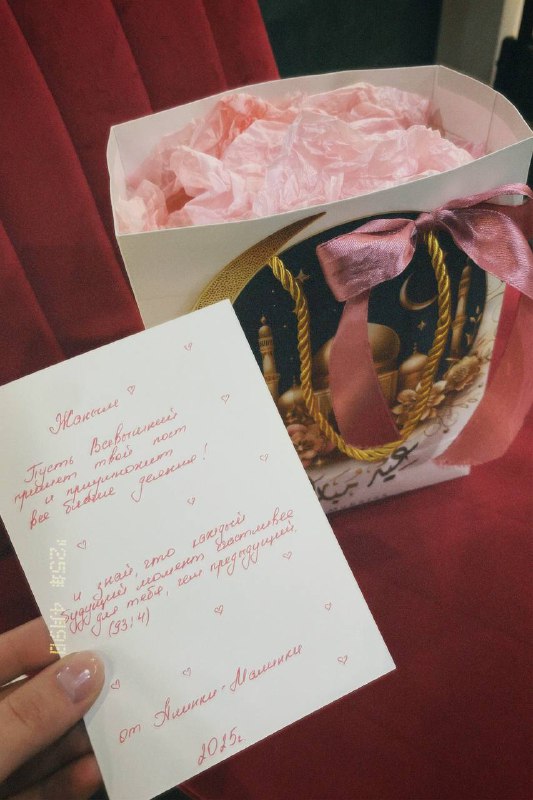 Жаныме ♡
Пусть Всевышний
примет твой пост
и приумножит
все благие деяния!
и знай, что каждый
будущий момент счастливее
для тебя, чем предыдущий.
(93:4)
от Алинки-Малинки
2025г.
'25年 4月9日
عيد مبارك